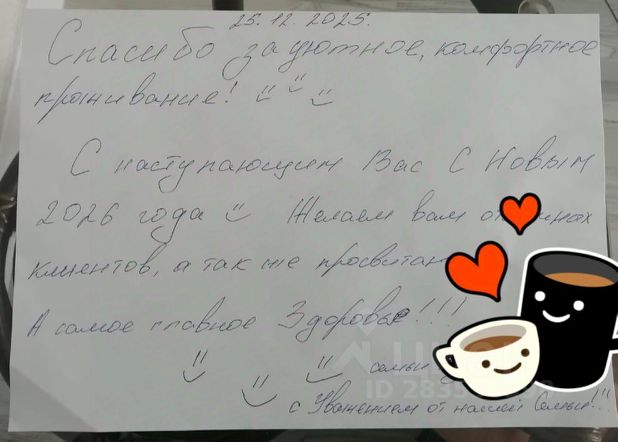 25.12.2025.
Спасибо за уютное, комфортное
проживание!
С наступающим Вас С Новым
2026 года Желаем вам
клиентов, а так же
А самое главное Здоровье!!!
семьи
с Уважением от нашей Семьи!